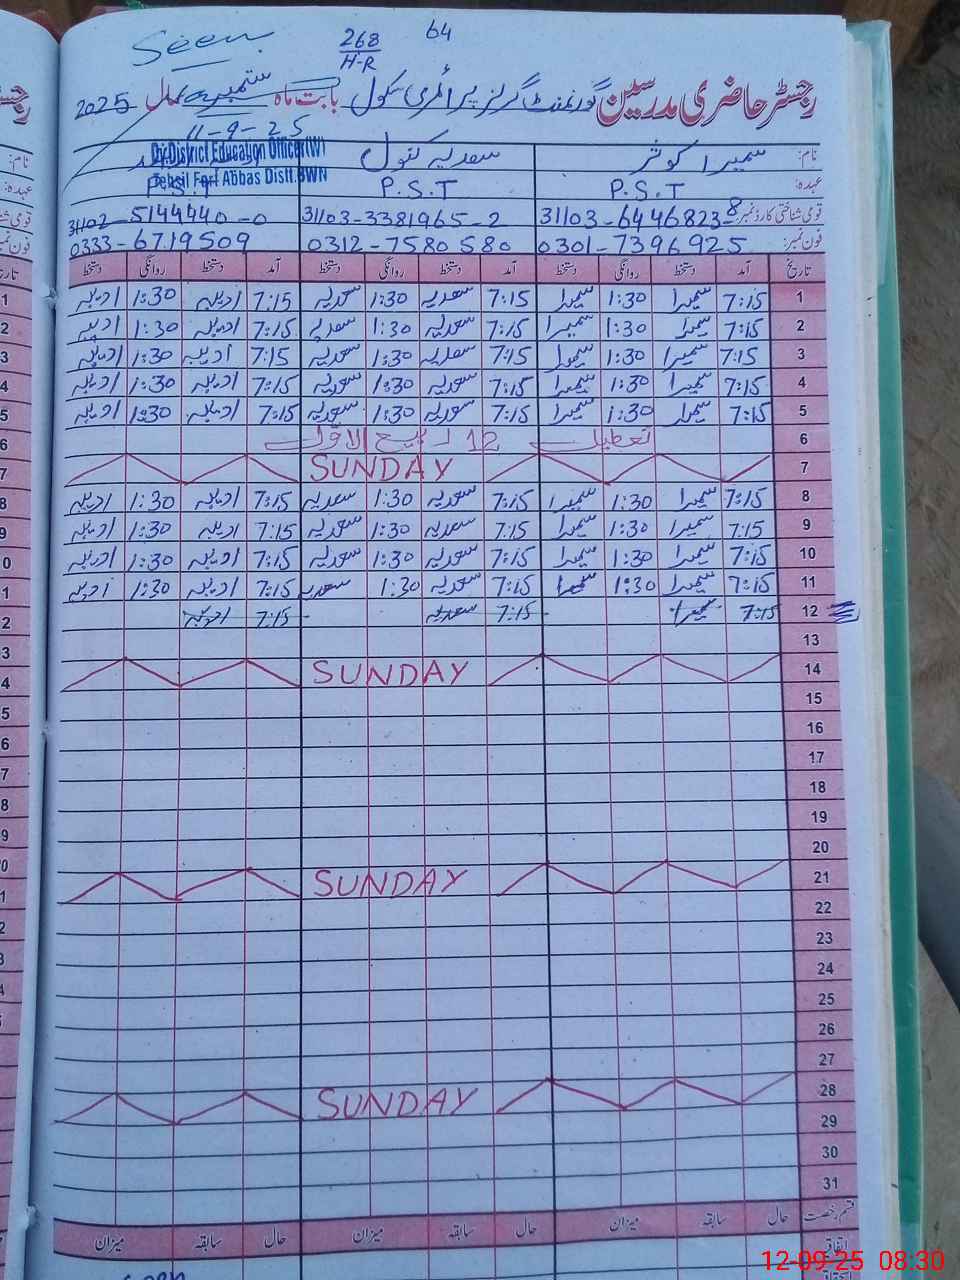 Seen
268
H-R
64
رجسٹر حاضری مدرسین گورنمنٹ گرلز پرائمری سکول بابت ماہ ستمبر سال 2025
11-9-25
Dy. District Education Officer (W)
Tehsil Fort Abbas Distt. BWN
نام: سمیرا کوثر سعدیہ کنول
عہدہ: P.S.T P.S.T P.S.T
قومی شناختی کارڈ نمبر: 31103-6446823-8 31103-3381965-2 31102-5144440-0
فون نمبر: 0301-7396925 0312-7580580 0333-6719509
تاریخ آمد دستخط روانگی دستخط آمد دستخط روانگی دستخط آمد دستخط روانگی دستخط
1 7:15 سمیرا 1:30 سمیرا 7:15 سعدیہ 1:30 سعدیہ 7:15 ادیبہ 1:30 ادیبہ
2 7:15 سمیرا 1:30 سمیرا 7:15 سعدیہ 1:30 سعدیہ 7:15 ادیبہ 1:30 ادیبہ
3 7:15 سمیرا 1:30 سمیرا 7:15 سعدیہ 1:30 سعدیہ 7:15 ادیبہ 1:30 ادیبہ
4 7:15 سمیرا 1:30 سمیرا 7:15 سعدیہ 1:30 سعدیہ 7:15 ادیبہ 1:30 ادیبہ
5 7:15 سمیرا 1:30 سمیرا 7:15 سعدیہ 1:30 سعدیہ 7:15 ادیبہ 1:30 ادیبہ
6 تعطیل 12 ربیع الاول
7 SUNDAY
8 7:15 سمیرا 1:30 سمیرا 7:15 سعدیہ 1:30 سعدیہ 7:15 ادیبہ 1:30 ادیبہ
9 7:15 سمیرا 1:30 سمیرا 7:15 سعدیہ 1:30 سعدیہ 7:15 ادیبہ 1:30 ادیبہ
10 7:15 سمیرا 1:30 سمیرا 7:15 سعدیہ 1:30 سعدیہ 7:15 ادیبہ 1:30 ادیبہ
11 7:15 سمیرا 1:30 سمیرا 7:15 سعدیہ 1:30 سعدیہ 7:15 ادیبہ 1:30 ادیبہ
12 7:15 سمیرا 7:15 سعدیہ 7:15 ادیبہ
13
14 SUNDAY
15
16
17
18
19
20
21 SUNDAY
22
23
24
25
26
27
28 SUNDAY
29
30
31
قسم رخصت حال سابقہ میزان حال سابقہ میزان حال سابقہ میزان
اتفاقیہ
12-09-25 08:30